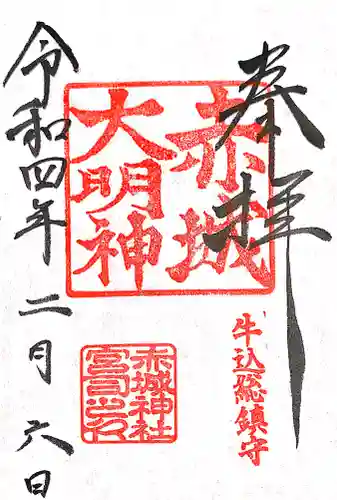 奉拝
赤城
大明神
牛込総鎮守
赤城神社
宮司之印
令和四年二月六日